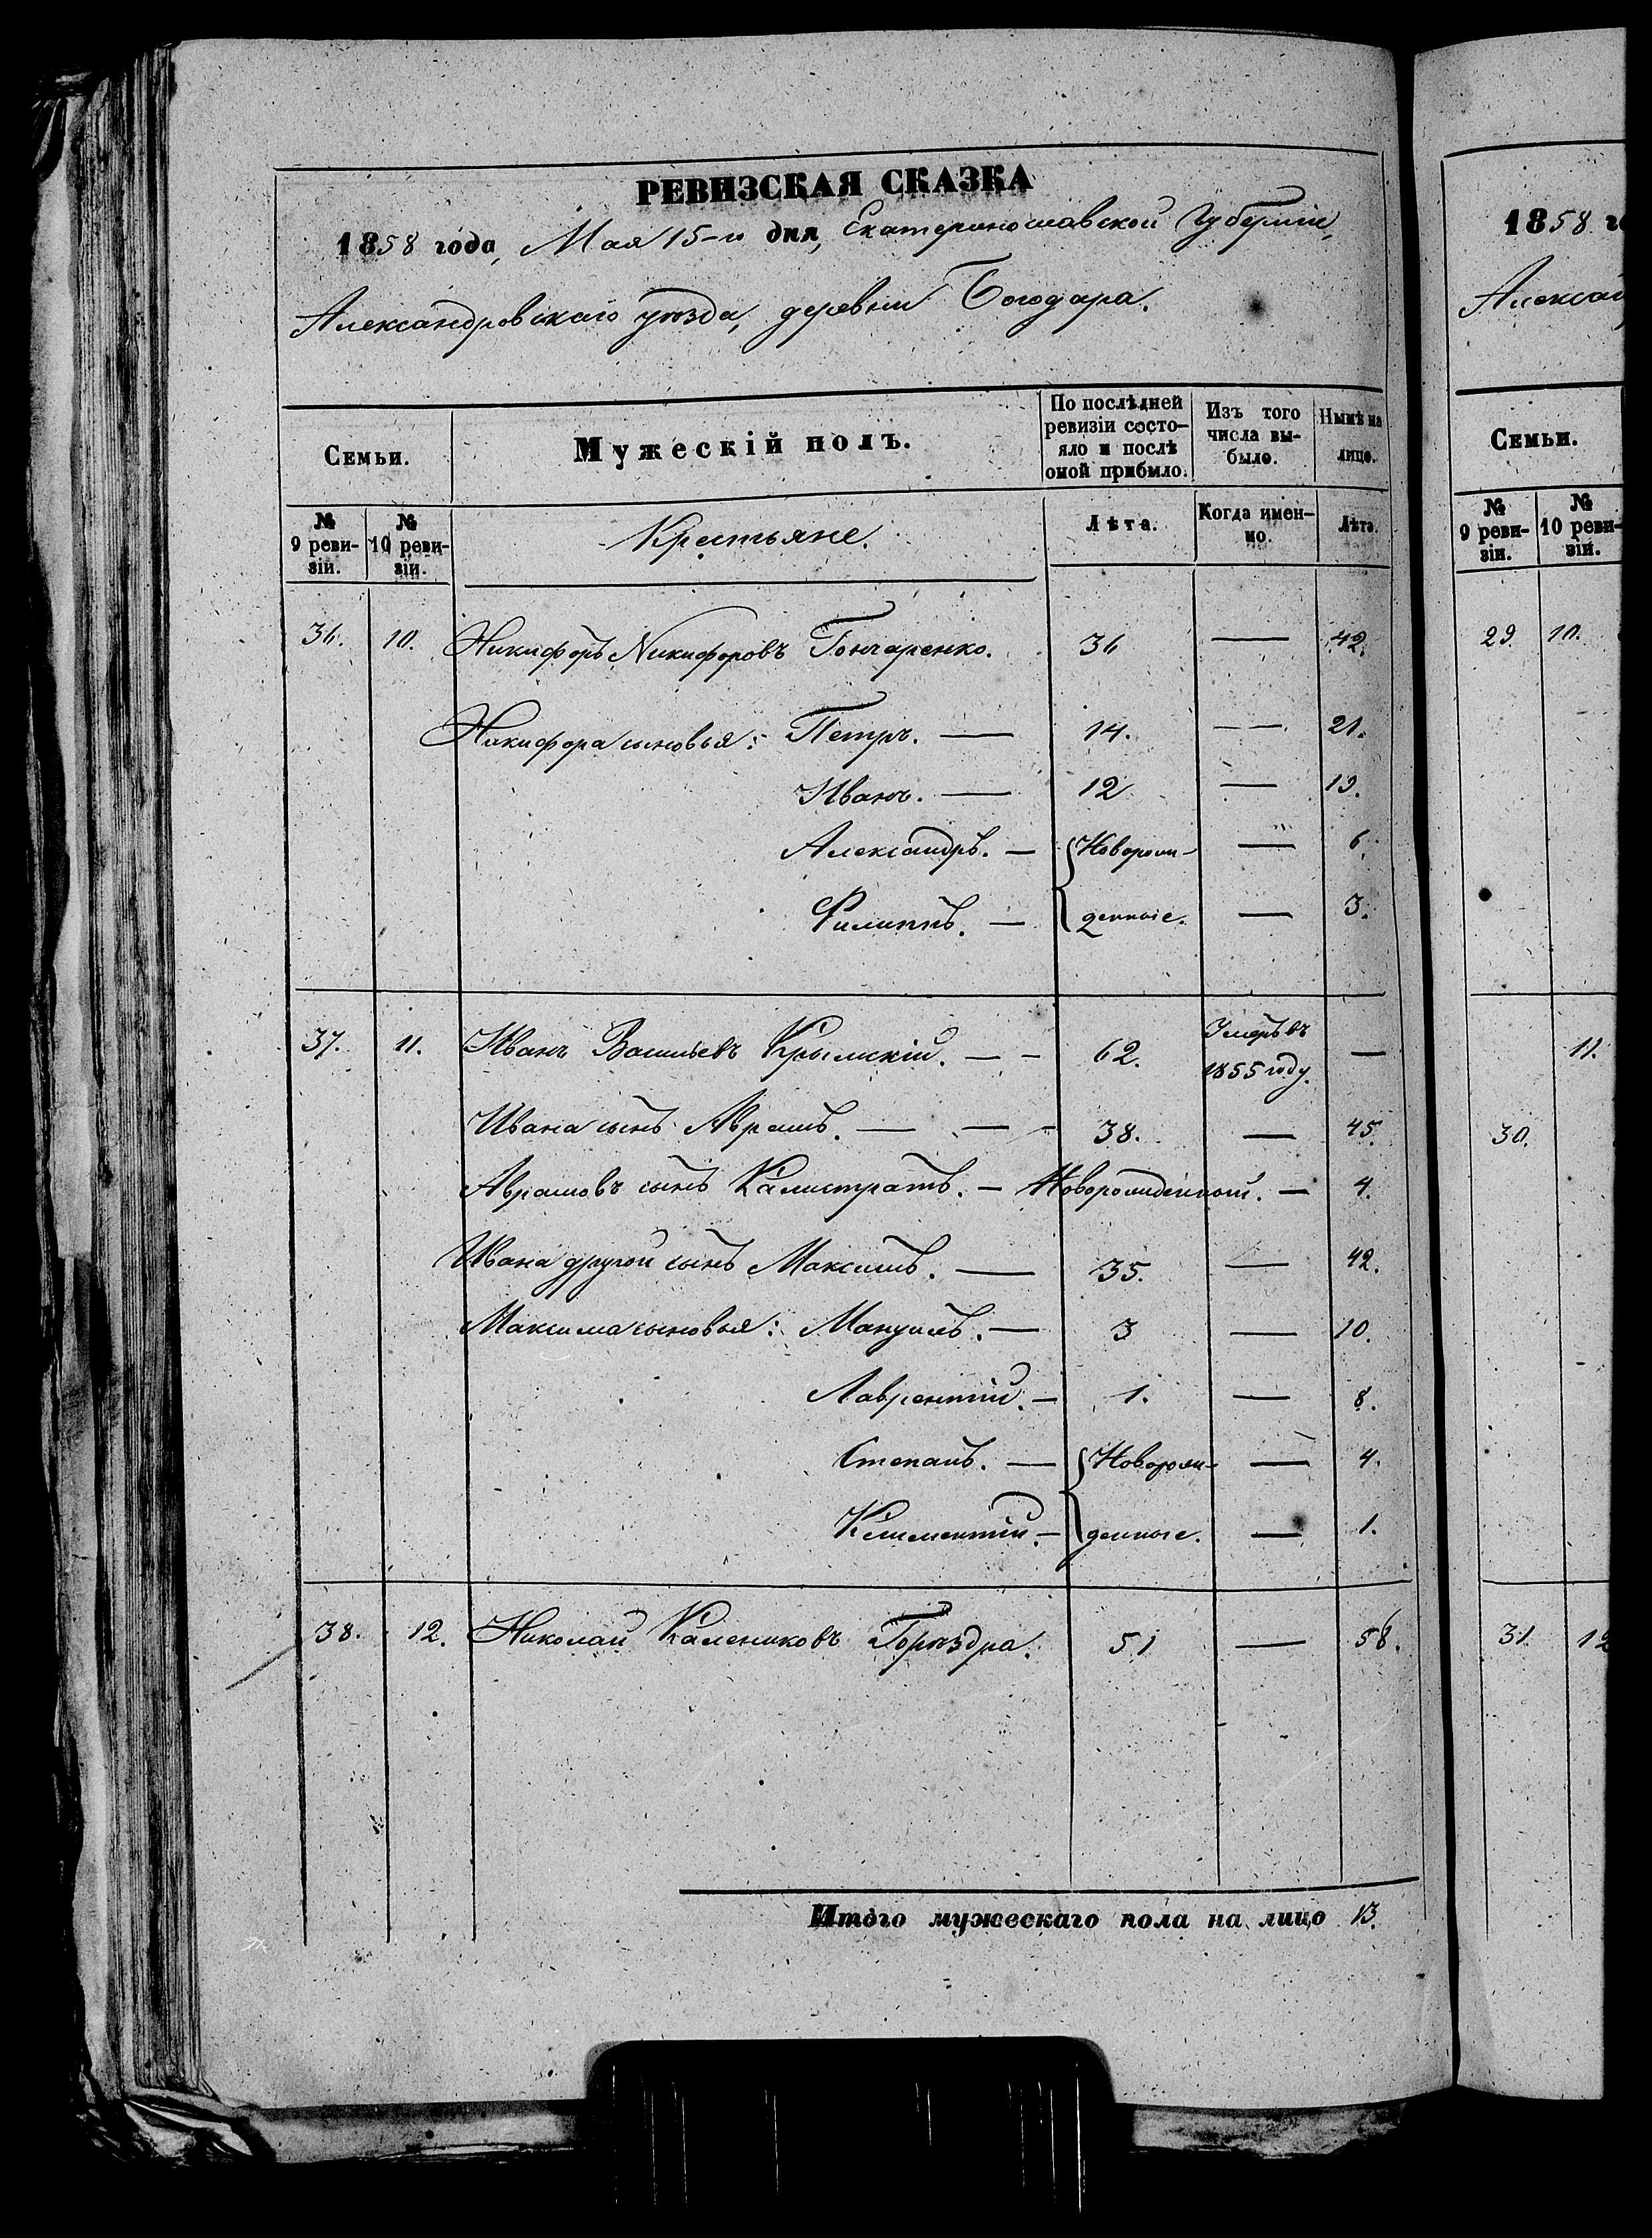 РЕВИЗСКАЯ СКАЗКА
1858 года, Мая 15-го дня, Екатеринославской Губерніи,
Александровскаго уѣзда, деревни Богодара.
Семьи. Мужескій полъ. По послѣдней ревизіи состо-яло и послѣ оной прибыло. Изъ того числа вы-было. Нынѣ на лицо.
№ 9 реви-зіи. № 10 реви-зіи. Крестьяне. Лѣта. Когда имен-но. Лѣта.
36. 10. Никифоръ Никифоровъ Гончаренко. 36 — 42.
Никифора сыновья: Петръ. — 14. — 21.
Иванъ. — 12 — 19.
Александръ. — Новорож- — 6.
Филиппъ. — денные. — 3.
37. 11. Иванъ Васильевъ Крымскій. — — 62. Умеръ въ 1855 году. —
Ивана сынъ Аврамъ. — — - 38. — 45.
Аврамовъ сынъ Калистратъ. — Новорожденный. — 4.
Ивана другой сынъ Максимъ. — 35. — 42.
Максима сыновья: Мануилъ. — 3 — 10.
Лаврентій. — 1. — 8.
Степанъ. — Новорож- — 4.
Климентій. — денные. — 1.
38. 12. Николай Калениковъ Горѣздра. 51 — 58.
Итого мужескаго пола на лицо 13.
1858 го
Алексан
Семьи.
№ 9 реви-зіи. № 10 реви-зіи.
29. 10.
11.
30.
31. 12